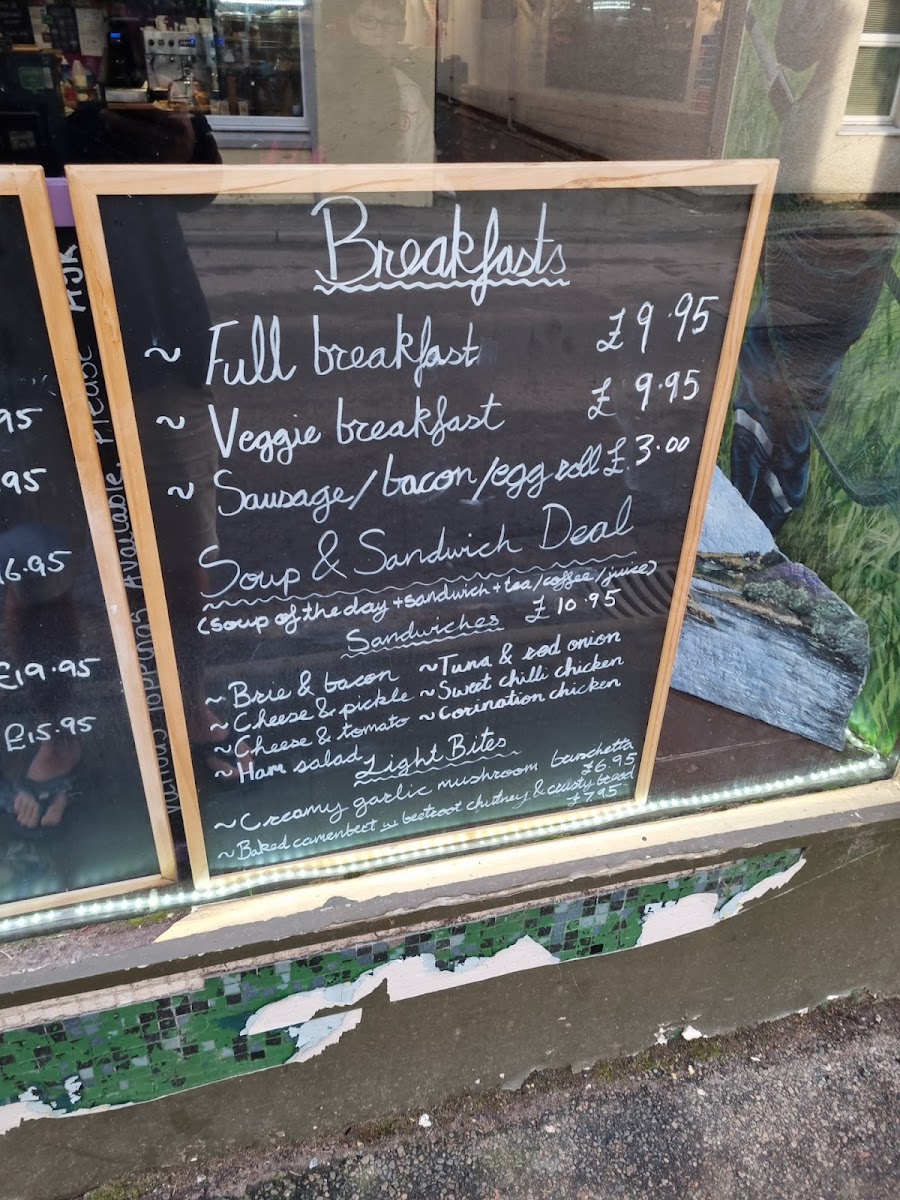 Breakfasts
~ Full breakfast £9.95
~ Veggie breakfast £ 9.95
~ Sausage/bacon/egg roll £3.00
Soup & Sandwich Deal
(soup of the day + sandwich + tea/coffee/juice)
£ 10.95
Sandwiches
~ Brie & bacon ~ Tuna & red onion
~ Cheese & pickle ~ Sweet chilli chicken
~ Cheese & tomato ~ Corination chicken
~ Ham salad
Light Bites
~ Creamy garlic mushroom bruschetta
£6.95
~ Baked camembert w beetroot chutney & crusty bread
£7.95
95
.95
16.95
£19.95
£15.95
Various toppings Available, Please Ask